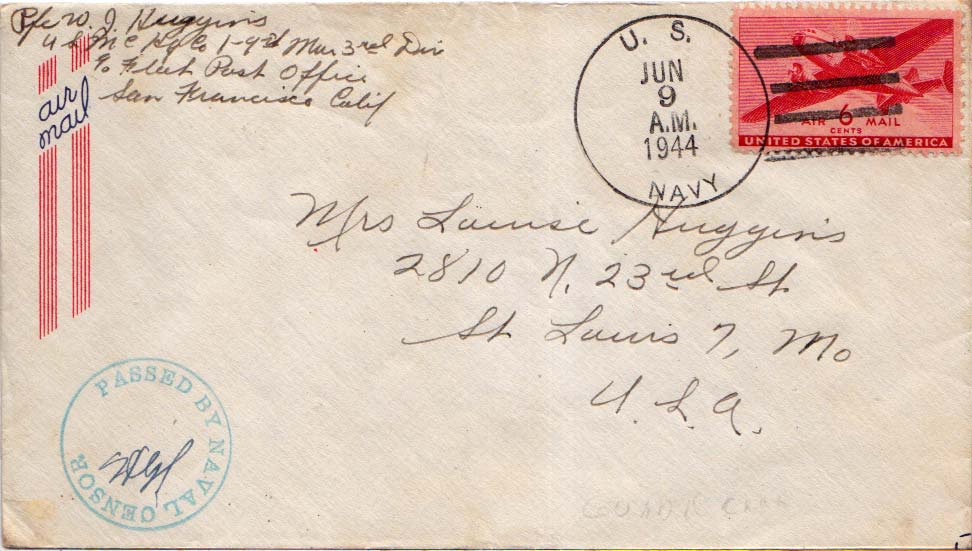 Pfc W. J Huggins
U S M C Hq Co 1-9th Mar 3rd Div
℅ Fleet Post Office
San Francisco Calif
air
mail
U. S.
JUN
9
A.M.
1944
NAVY
AIR 6 MAIL
CENTS
UNITED STATES OF AMERICA
Mrs Louise Huggins
2810 N. 23rd St
St Louis 7, Mo
U. S. A.
PASSED BY NAVAL CENSOR